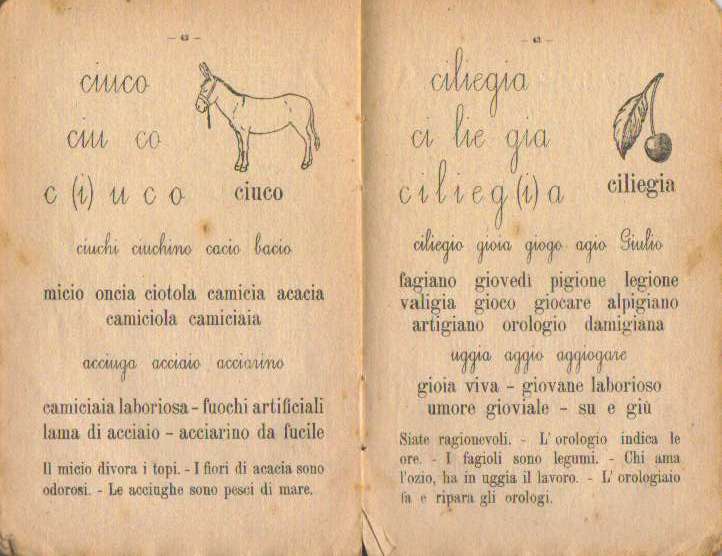 ciuco
ciu co
c (i) u c o
ciuco
ciuchi ciuchino cacio bacio
micio oncia ciotola camicia acacia
camiciola camiciaia
acciuga acciaio acciarino
camiciaia laboriosa - fuochi artificiali
lama di acciaio - acciarino da fucile
Il micio divora i topi. - I fiori di acacia sono
odorosi. - Le acciughe sono pesci di mare.
ciliegia
ci lie gia
c i l i e g (i) a
ciliegia
ciliegio gioia giogo agio Giulio
fagiano giovedì pigione legione
valigia gioco giocare alpigiano
artigiano orologio damigiana
uggia aggio aggiogare
gioia viva - giovane laborioso
umore gioviale - su e giù
Siate ragionevoli. - L'orologio indica le
ore. - I fagioli sono legumi. - Chi ama
l'ozio, ha in uggia il lavoro. - L'orologiaio
fa e ripara gli orologi.